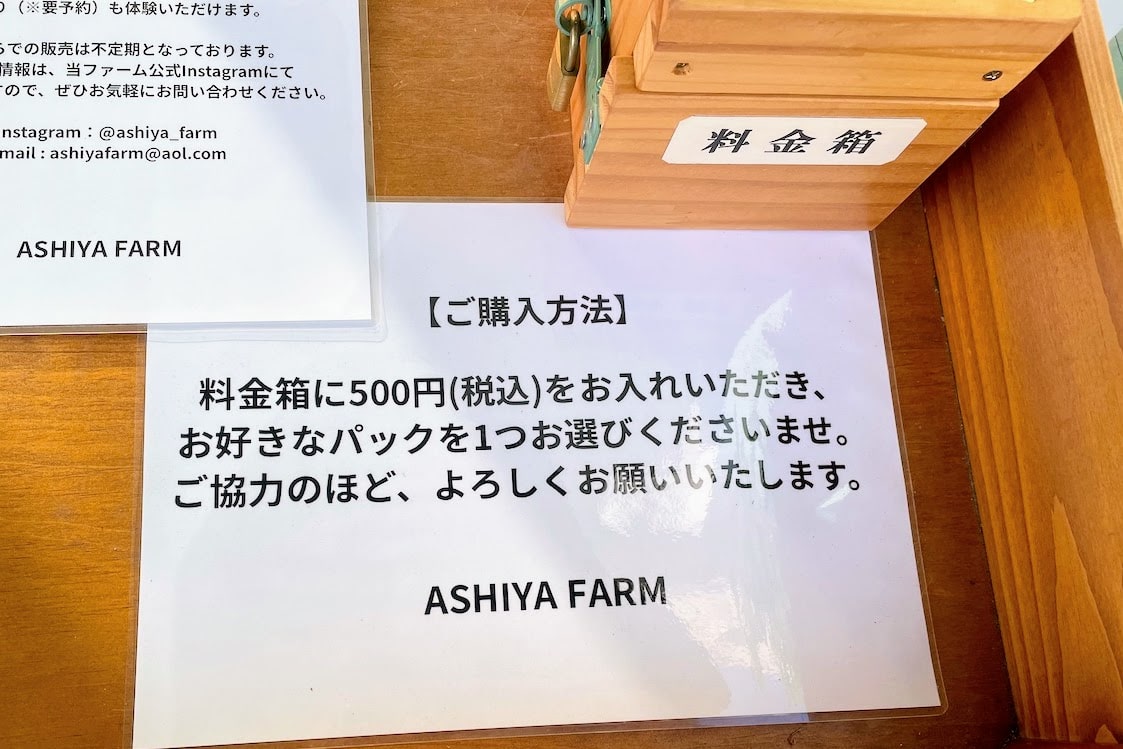 (※要予約)も体験いただけます。
での販売は不定期となっております。
情報は、当ファーム公式Instagramにて
ので、ぜひお気軽にお問い合わせください。
nstagram:@ashiya_farm
mail : ashiyafarm@aol.com
ASHIYA FARM
料金箱
【ご購入方法】
料金箱に500円(税込)をお入れいただき、
お好きなパックを1つお選びくださいませ。
ご協力のほど、よろしくお願いいたします。
ASHIYA FARM